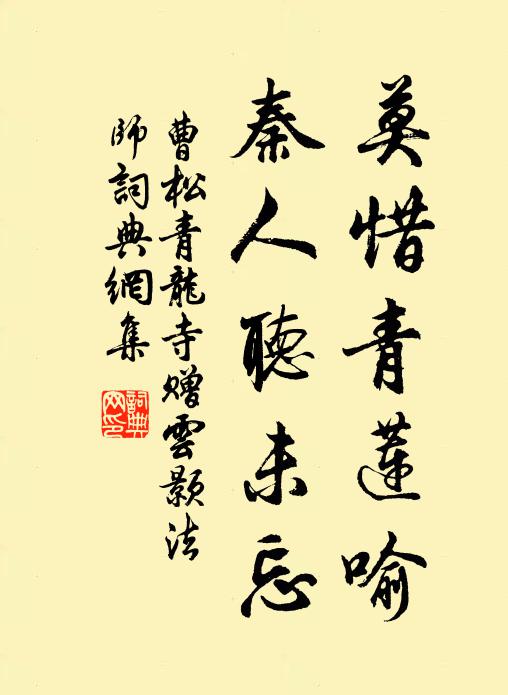 莫惜青蓮喻
秦人聽未忘
曹松青龍寺贈雲顥法
師詞典網集
詞典網印